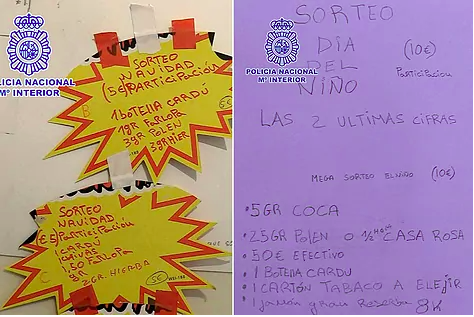 POLICÍA NACIONAL
Mº INTERIOR
SORTEO
NAVIDAD
(5€) PARTICIPACIÓN
1 BOTELLA CARDÚ
1gr FARLOPA
3gr POLEN
3gr HIER
5€
SORTEO
NAVIDAD
(€5) PARTICIPACIÓN
1 CARDU
1,50 FARLOPA
2GR HIERBA
5€
SORTEO
DIA
DEL
NIÑO
(10€)
PARTICIPACIÓN
POLICÍA NACIONAL
Mº INTERIOR
LAS 2 ULTIMAS CIFRAS
MEGA SORTEO EL NIÑO (10€)
• 5 GR COCA
• 25 GR POLEN O 1/2 CASA ROSA
• 50€ EFECTIVO
• 1 BOTELLA CARDU
• 1 CARTÓN TABACO A ELEJIR
• 1 jamón gran Reserva 8K